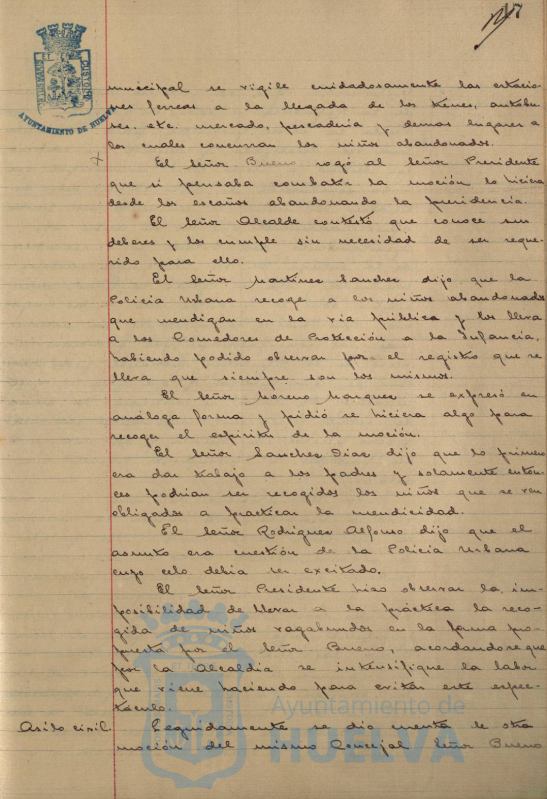 municipal se vigile cuidadosamente las estacio-
nes ferreas a la llegada de los trenes, autobu-
ses. etc. mercado, pescaderia y demas lugares a
los cuales concurran los niños abandonados.
El Señor Bueno rogó al Señor Presidente
que si pensaba combatir la moción lo hiciera
desde los escaños abandonando la presidencia.
El Señor Alcalde contestó que conoce sus
deberes y los cumple sin necesidad de ser reque-
rido para ello.
El Señor Martinez Sanchez dijo, que la
Policia Urbana recoge a los niños abandonados
que mendigan en la via pública y los lleva
a los Comedores de Protección a la Infancia,
habiendo podido observar por el registro que se
lleva que siempre son los mismos.
El Señor Moreno Marquez se expresó en
análoga forma y pidió se hiciera algo para
recoger el espíritu de la moción.
El Señor Sanchez Diaz dijo que lo primero
era dar trabajo a los padres y solamente enton-
ces podrian ser recogidos los niños que se ven
obligados a practicar la mendicidad.
El Señor Rodriguez Alfonso dijo que el
asunto era cuestión de la Policia Urbana
cuyo celo debia ser excitado.
El Señor Presidente hizo observar la im-
posibilidad de llevar a la práctica la reco-
gida de niños vagabundos en la forma pro-
puesta por el Señor Bueno, acordandose que
por la Alcaldia se intensifique la labor
que viene haciendo para evitar este espec-
táculo.
Asilo civil. Seguidamente se dio cuenta de otra
moción del mismo Concejal Señor Bueno
AYUNTAMIENTO DE HUELVA
Ayuntamiento de
HUELVA